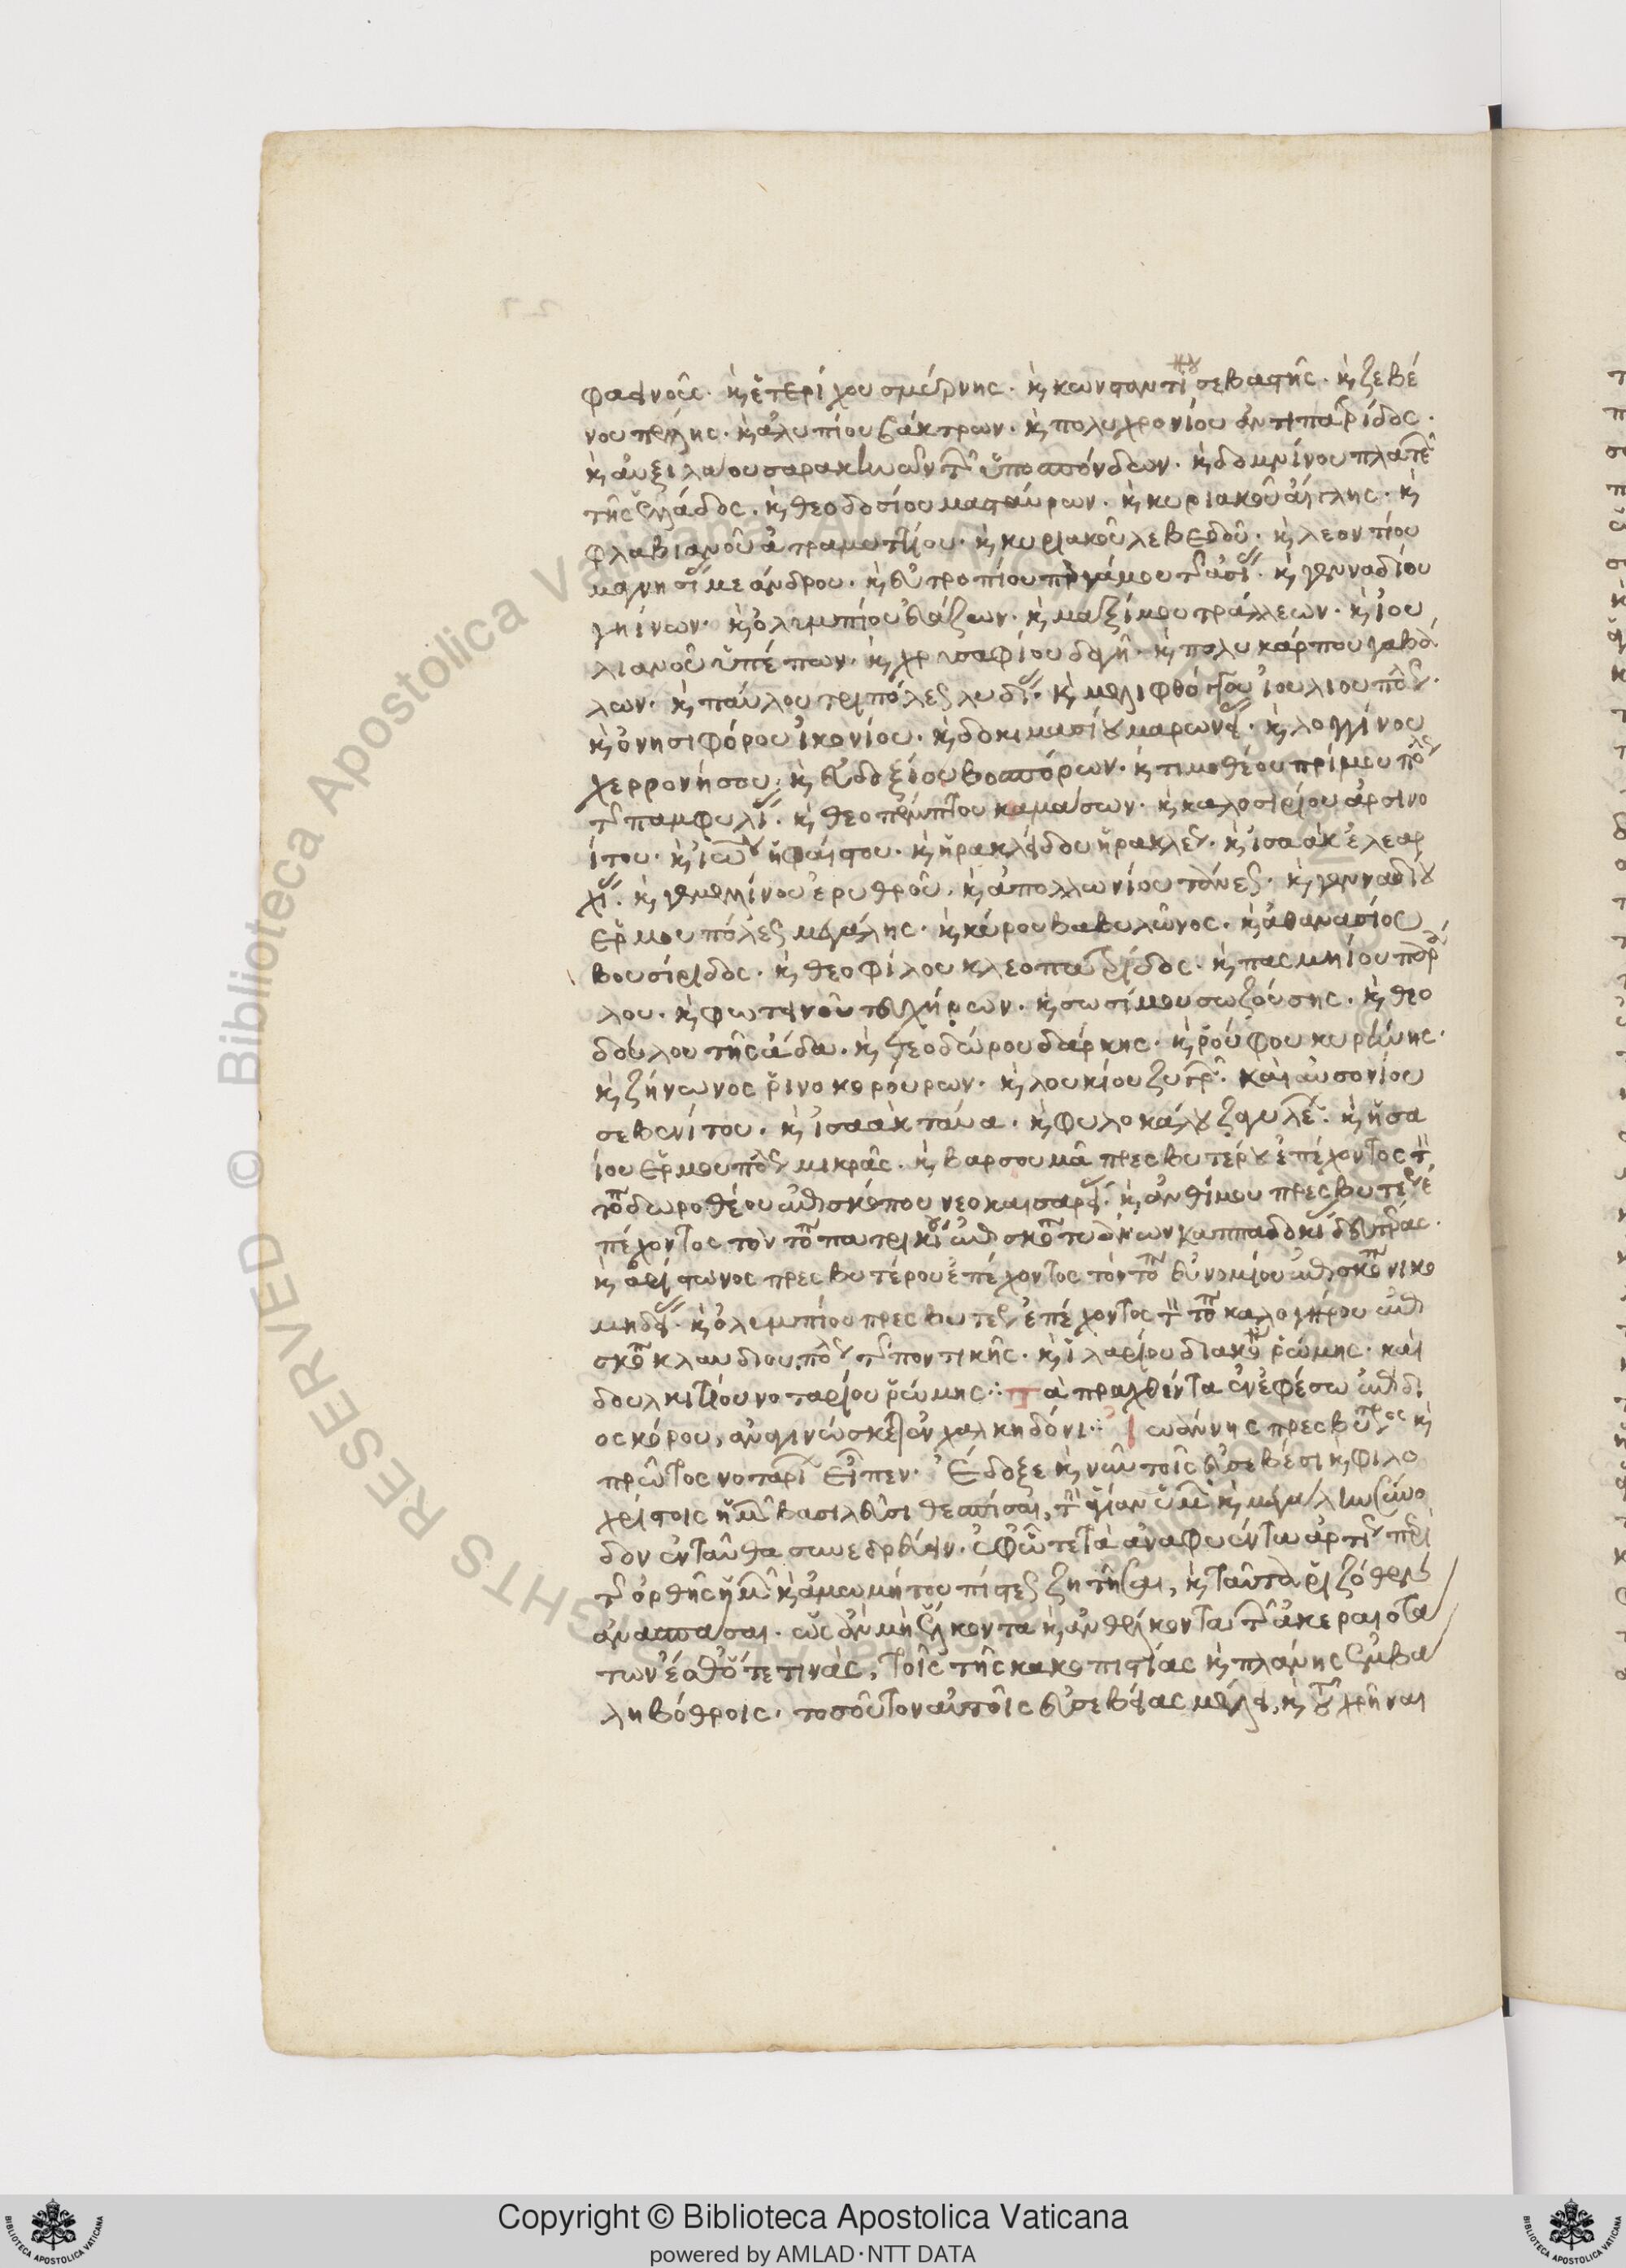 φαινοῦς· κ̣ ἐτερίχου σμύρνης· κ̣ κωνσταντί σεβαστῆς· κ̣ ζεβέ
νου πέλλης· κ̣ ἀλυπίου βάκτρων· κ̣ πολυχρονίου ἀντιπατρίδος·
κ̣ αὐξιλάου σαρακηνῶν τ ὑποσπόνδων· κ̣ δομνίνου πλατε
τῆς ἑλλάδος· κ̣ θεοδοσίου μασταύρων· κ̣ κυριακοῦ αἰγλης· κ̣
φλαβιανοῦ ἀτραμυτίου· κ̣ κυριακοῦ λεβέδου· κ̣ λεοντίου
μαγνησί μεάνδρου· κ̣ εὐτροπίου περγάμου τ ἀσί· κ̣ γενναδίου
γηίνων· κ̣ ὀλυμπίου εὐάζων· κ̣ μαξίμου τράλλεων· κ̣ ἰου
λιανοῦ ὑπέπων· κ̣ χρυσαφίου· κ̣ πολυκάρπου γαβά
λων· κ̣ παύλου τριπόλεως λυδί· κ̣ μελιφθόγγου ἰουλιουπόλ·
κ̣ ὀνησιφόρου ἰκονίου· κ̣ δοκιμασίου μαρωνεί· κ̣ λογγίνου
χερρονήσου· κ̣ εὐδοξίου βοσπόρων· κ̣ τιμοθέου πρίμου πόλ
τ παμφυλί· κ̣ θεοπέμπτου καμάσων· κ̣ καλοσιρίου ἀρσινο
ίτου· κ̣ ἰω ἡφαίστου· κ̣ ἡρακλείδου ἡρακλε· κ̣ ἰσαὰκ ἐλεαρ
χί· κ̣ γεμελλίνου ἐρυθροῦ· κ̣ ἀπολλωνίου τάνεως· κ̣ γενναδίου
ἑρμουπόλεως μεγάλης· κ̣ κύρου βαβυλῶνος· κ̣ ἀθανασίος
βουσίριδος· κ̣ θεοφίλου κλεοπατρίδος· κ̣ πασμηίου παρ
λου· κ̣ φωτεινοῦ τευχήρων· κ̣ σωσίμου σωζούσης· κ̣ θεο
δούλου τησάδα· κ̣ θεοδώρου δάρνης· κ̣ ῥούφου κυρήνης·
κ̣ ζήνωνος ῥινοκορούρων· κ̣ λουκίου ζυγρ· καὶ αὐσονίου
σεβενίτου· κ̣ ἰσαὰκ ταύα· κ̣ φυλοκάλου· κ̣ ἡσα
ίου ἑρμουπόλ μικρᾶς· κ̣ βαρσουμᾶ πρεσβυτέρου ἐπέχοντος τ
τόπ δωροθέου ἐπισκόπου νεοκαισαρεί· κ̣ ἀνθίμου πρεσβυτέρου ἐ
πέχοντος τὸν τόπ πατρικί ἐπισκόπ τυάνων καππαδοκί δευτέρας·
κ̣ ἀρίστωνος πρεσβυτέρου ἐπέχοντος τὸν τόπ εὐνομίου ἐπισκόπ νικο
μηδεί· κ̣ ὀλυμπίου πρεσβυτέρ ἐπέχοντος τ τόπ καλογήρου ἐπι
σκόπ κλαυδιουπόλ τ ποντικῆς· κ̣ ἱλαρίου διακό ῥώμης· καὶ
δουλκιτίου νοταρίου ῥώμης ∴ Τὰ πραχθέντα ἐν ἐφέσω ἐπὶ δι
οσκόρου, ἀναγινώσκεται ἐν χαλκηδόνι ∴ Ἰωάννης πρεσβύτερος κ̣
πρῶτος νοταρί εἶπεν· Ἔδοξε κ̣ νῦν τοῖς εὐσεβέσι κ̣ φιλο
χρίστοις ἡμ βασιλεῦσι θεσπίσαι, τ ἁγίαν ὑμ κ̣ μεγάλην σύνο
δον ἐνταῦθα συνεδρεύειν· ἐφ' ᾧ τε τὰ ἀναφυέντα ἀρτίως περὶ
τ ὀρθῆς ἡμ κ̣ ἀμωμήτου πίστεως ζητῆσαι, κ̣ ταῦτα ῥιζόθεν
ἀνασπάσαι· ὡς ἂν μὴ ἕλκοντα κ̣ ἀνθέλκοντα τ ἀκεραιοτά
των ἔσθ' ὅτε τινὰς, τοῖς τῆς κακοπιστίας κ̣ πλάνης ἐμβά
λη βόθροις· τοσοῦτον αὐτοῖς εὐσεβείας μέλει, κ̣ τοῦ χρῆναι